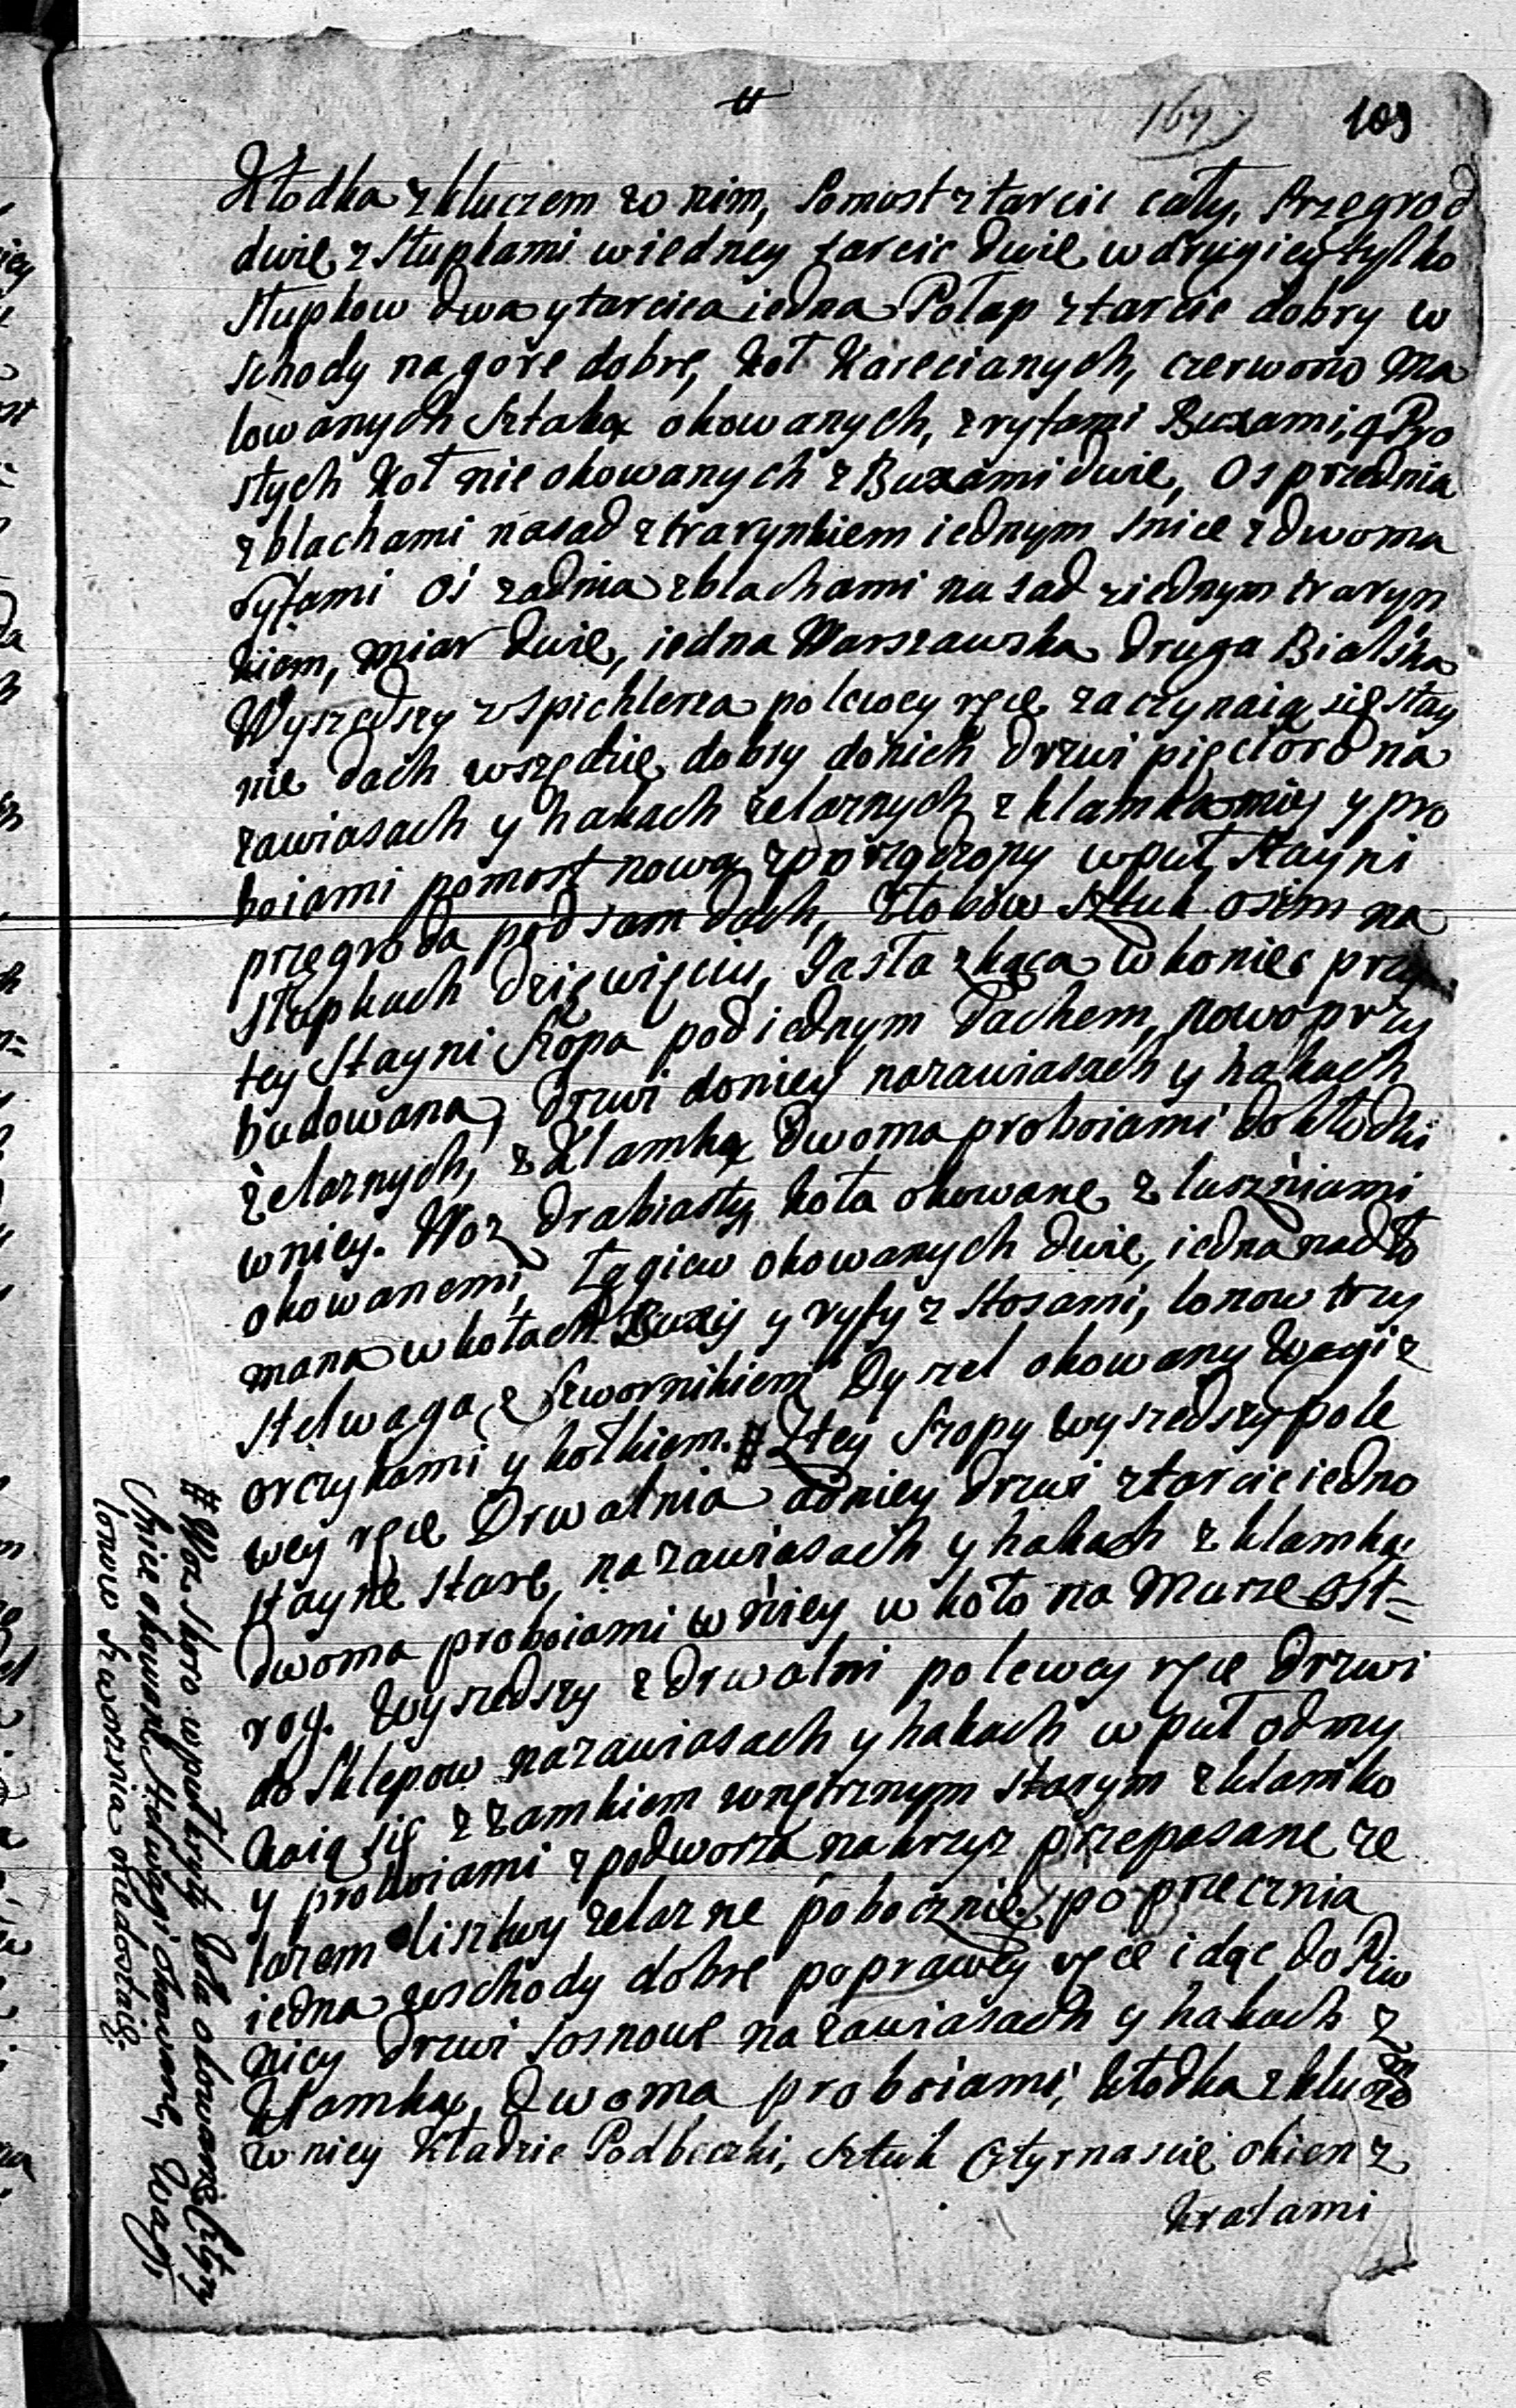 #
169
109
Kłodka z kluczem w nim, Pomost z tarcic cały, Przegrod
dwie z Słupkami wiedney tarcic dwie w drugiey tylko
Słupkow dwa y tarcica iedna Połap z tarcic dobry w
schody na gore dobre, koł Karecianych, czerwono ma
lowanych Sztabą okowanych, z ryfami Buxami, 4 Pro
stych koł nie okowanych z Buxami dwie, Os przednia
z blachami nasad z trarynkiem iednym snice z dwoma
ryfami Oś zadnia z blachami nasad z iednym traryn
kiem, miar dwie, iedna Warszawska druga Bialska
Wyszedszy z Spichlerza po lewey ręce zaczynaią się stay
nie dach wszędzie dobry do nich drzwi pięcioro na
zawiasach y hakach żelaznych z klamkami y pro
boiami pomost nowy zporządzony w puł Stayni
przegroda pod sam dach, Złobow sztuk osim na
Słupkach dziewięciu, Jasła w koniec przy
tey Stayni Szopa pod iednym dachem, nowo przy
budowana, drzwi do niey na zawiasach y hakach
żelaznych, z Klamką dwoma proboiami do kłodki
w niey. Woz drabiasty koła okowane z luszniami
okowanemi, Łągiew okowanych dwie, iedna nadło
mana w kołach Buxy y ryfy z Stosami, lonow trzy
Stelwaga z Szwornikiem Dyszel okowany Wagi z
orczykami y kołkiem. # Z tey Szopy wyszedszy po le
wey ręce Drwalnia do niey drzwi z tarcic iedno
stayne stare, na zawiasach y hakach z klamką
dwoma proboiami w niey w koło na Murze ost=
rog. Wyszedszy z drwalni po lewey ręce drzwi
do Sklepow na zawiasach y hakach w puł odmy
kaią się z zamkiem wnętrznym starym z klamką
y proboiami z podworza na krzyz przepasane że
lazem lisztwy żelazne pobocznie poprzecznia
iedna schody dobre po prawey ręce idąc do Piw
nicy drzwi sosnowe na zawiasach y hakach z
Klamką, dwoma proboiami, kłodka z kluczem
w niey Kładzie Podbeczki, Sztuk Cztyrnascie okien z
kratami
# Woz Skoro w puł kryty Koła okowane Cztyry
Snice okowane Stelwagi okowane, Wagi,
lonow Szwornia niedostaię.